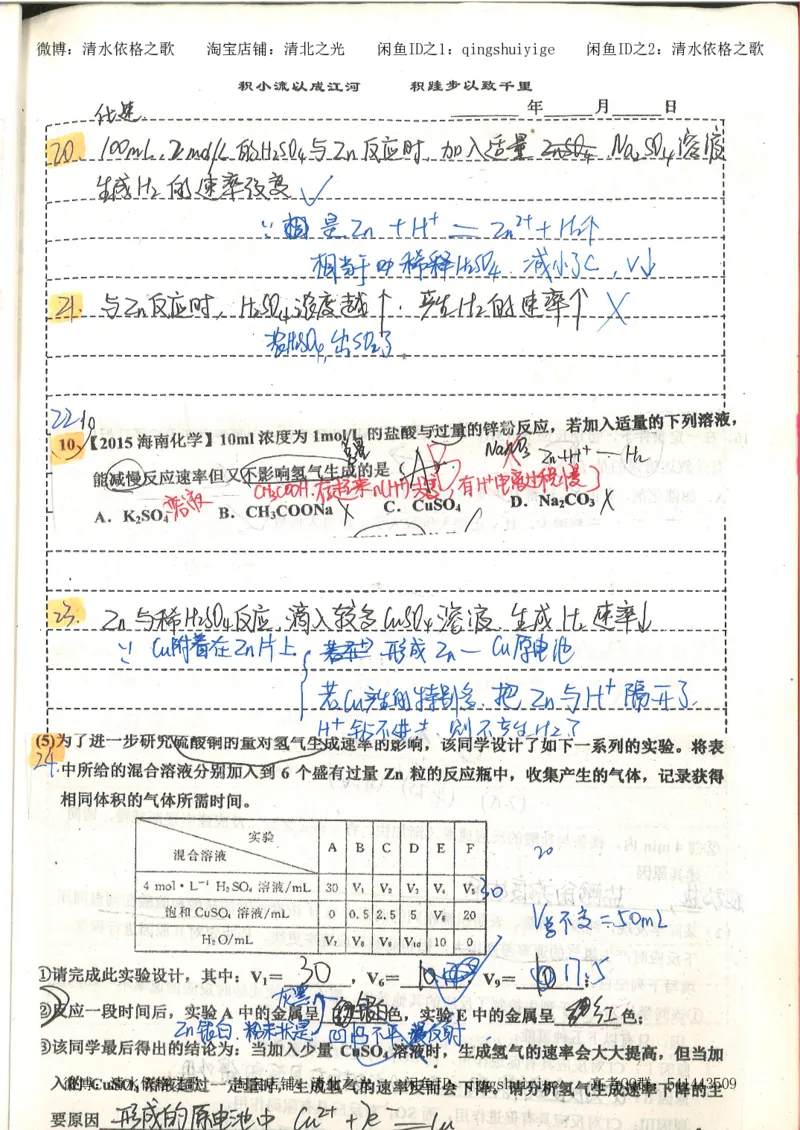 微博：清水依格之歌 淘宝店铺：清北之光 闲鱼ID之1：qingshuiyige 闲鱼ID之2：清水依格之歌
积小流以成江河 积跬步以致千里
年 月 日
化速
20. 100mL 2mol/L 的H₂SO₄与Zn反应时，加入适量 Na₂SO₄溶液
生成H₂的速率改变 ✓
∵ 是 Zn + H⁺ = Zn²⁺ + H₂↑
相当于 稀释H₂SO₄ 减小了C，V↓
21. 与Zn反应时，H₂SO₄浓度越↑，产生H₂的速率↑ ✗
若浓H₂SO₄出SO₂了
22.
10.【2015海南化学】10ml浓度为1mol/L的盐酸与过量的锌粉反应，若加入适量的下列溶液，
Zn+H⁺ … H₂
能减慢反应速率但又不影响氢气生成的是（A）
溶液
A．K₂SO₄ B．CH₃COONa ✗ C．CuSO₄ D．Na₂CO₃ ✗
23. Zn与稀H₂SO₄反应，滴入较多CuSO₄溶液，生成H₂速率↓
∵ Cu附着在Zn片上 形成Zn—Cu原电池
若Cu产生的特别多，把Zn与H⁺隔开了，
H⁺钻不进去，则不产生H₂了
(5)为了进一步研究硫酸铜的量对氢气生成速率的影响，该同学设计了如下一系列的实验。将表
24.
中所给的混合溶液分别加入到 6 个盛有过量 Zn 粒的反应瓶中，收集产生的气体，记录获得
相同体积的气体所需时间。
实验 混合溶液 A B C D E F
4 mol·L⁻¹ H₂SO₄ 溶液/mL 30 V₁ V₂ V₃ V₄ V₅ 30
饱和 CuSO₄ 溶液/mL 0 0.5 2.5 5 V₆ 20
H₂O/mL V₇ V₈ V₉ V₁₀ 10 0
20
V总不变=50mL
①请完成此实验设计，其中：V₁= 30 ，V₆= 10 ，V₉= 17.5 ；
②反应一段时间后，实验 A 中的金属呈 灰黑 色，实验 E 中的金属呈 红 色；
Zn银白 粉末状是凹凸不平 反射
③该同学最后得出的结论为：当加入少量 CuSO₄ 溶液时，生成氢气的速率会大大提高，但当加
入的 CuSO₄ 溶液超过一定量时，生成氢气的速率反而会下降。请分析氢气生成速率下降的主
要原因 形成的原电池中 Cu²⁺ + e⁻ = Cu